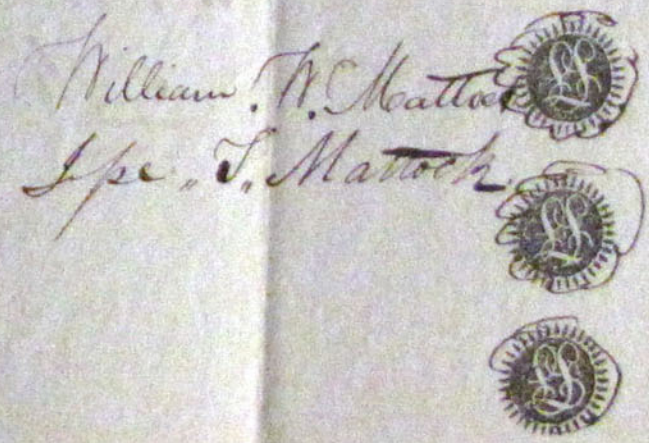 William. W. Mattock LS
Jpe. T. Mattock. LS
LS